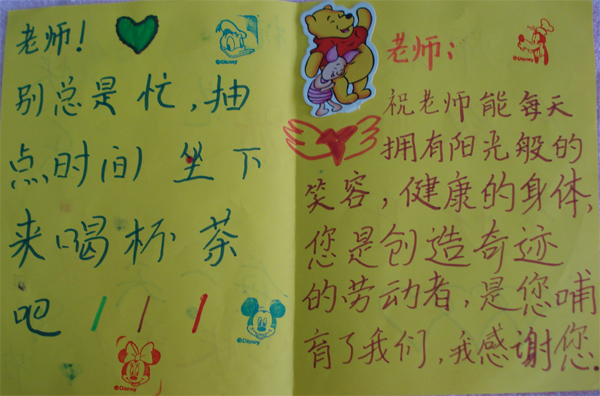 老师！
©Disney
别总是忙，抽
点时间 坐下
来喝杯茶
吧！！！
©Disney
©Disney
老师：
©Disney
祝老师能每天
拥有阳光般的
笑容，健康的身体，
您是创造奇迹
的劳动者，是您哺
育了我们，我感谢您.